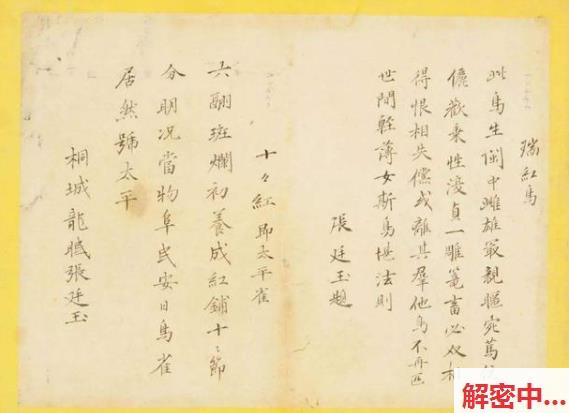 瑞紅鳥
此鳥生閩中雌雄最親暱宛篤
儷歡秉性貞一雕籠畜必双相
得恨相失儻或離其羣他鳥不再匹
世間輕薄女斯鳥堪法則
張廷玉題
十々紅 即太平雀
六翮斑斕初養成紅鋪十二節
分明况當物阜民安日鳥雀
居然號太平
桐城龍眠張廷玉
解密中...